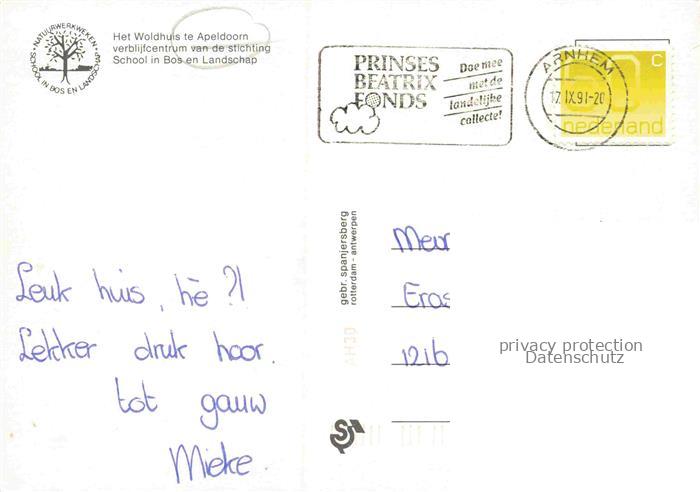 NATUURWERKWEKEN
SCHOOL IN BOS EN LANDSCHAP
Het Woldhuis te Apeldoorn
verblijfcentrum van de stichting
School in Bos en Landschap
PRINSES
BEATRIX
FONDS
Doe mee
met de
landelijke
collecte!
ARNHEM
17.IX.91-20
C
60
nederland
gebr. spanjersberg
rotterdam - antwerpen
Leuk huis, hè?!
Lekker druk hoor.
tot gauw
Mieke.
Meur
Eras
121b
privacy protection
Datenschutz